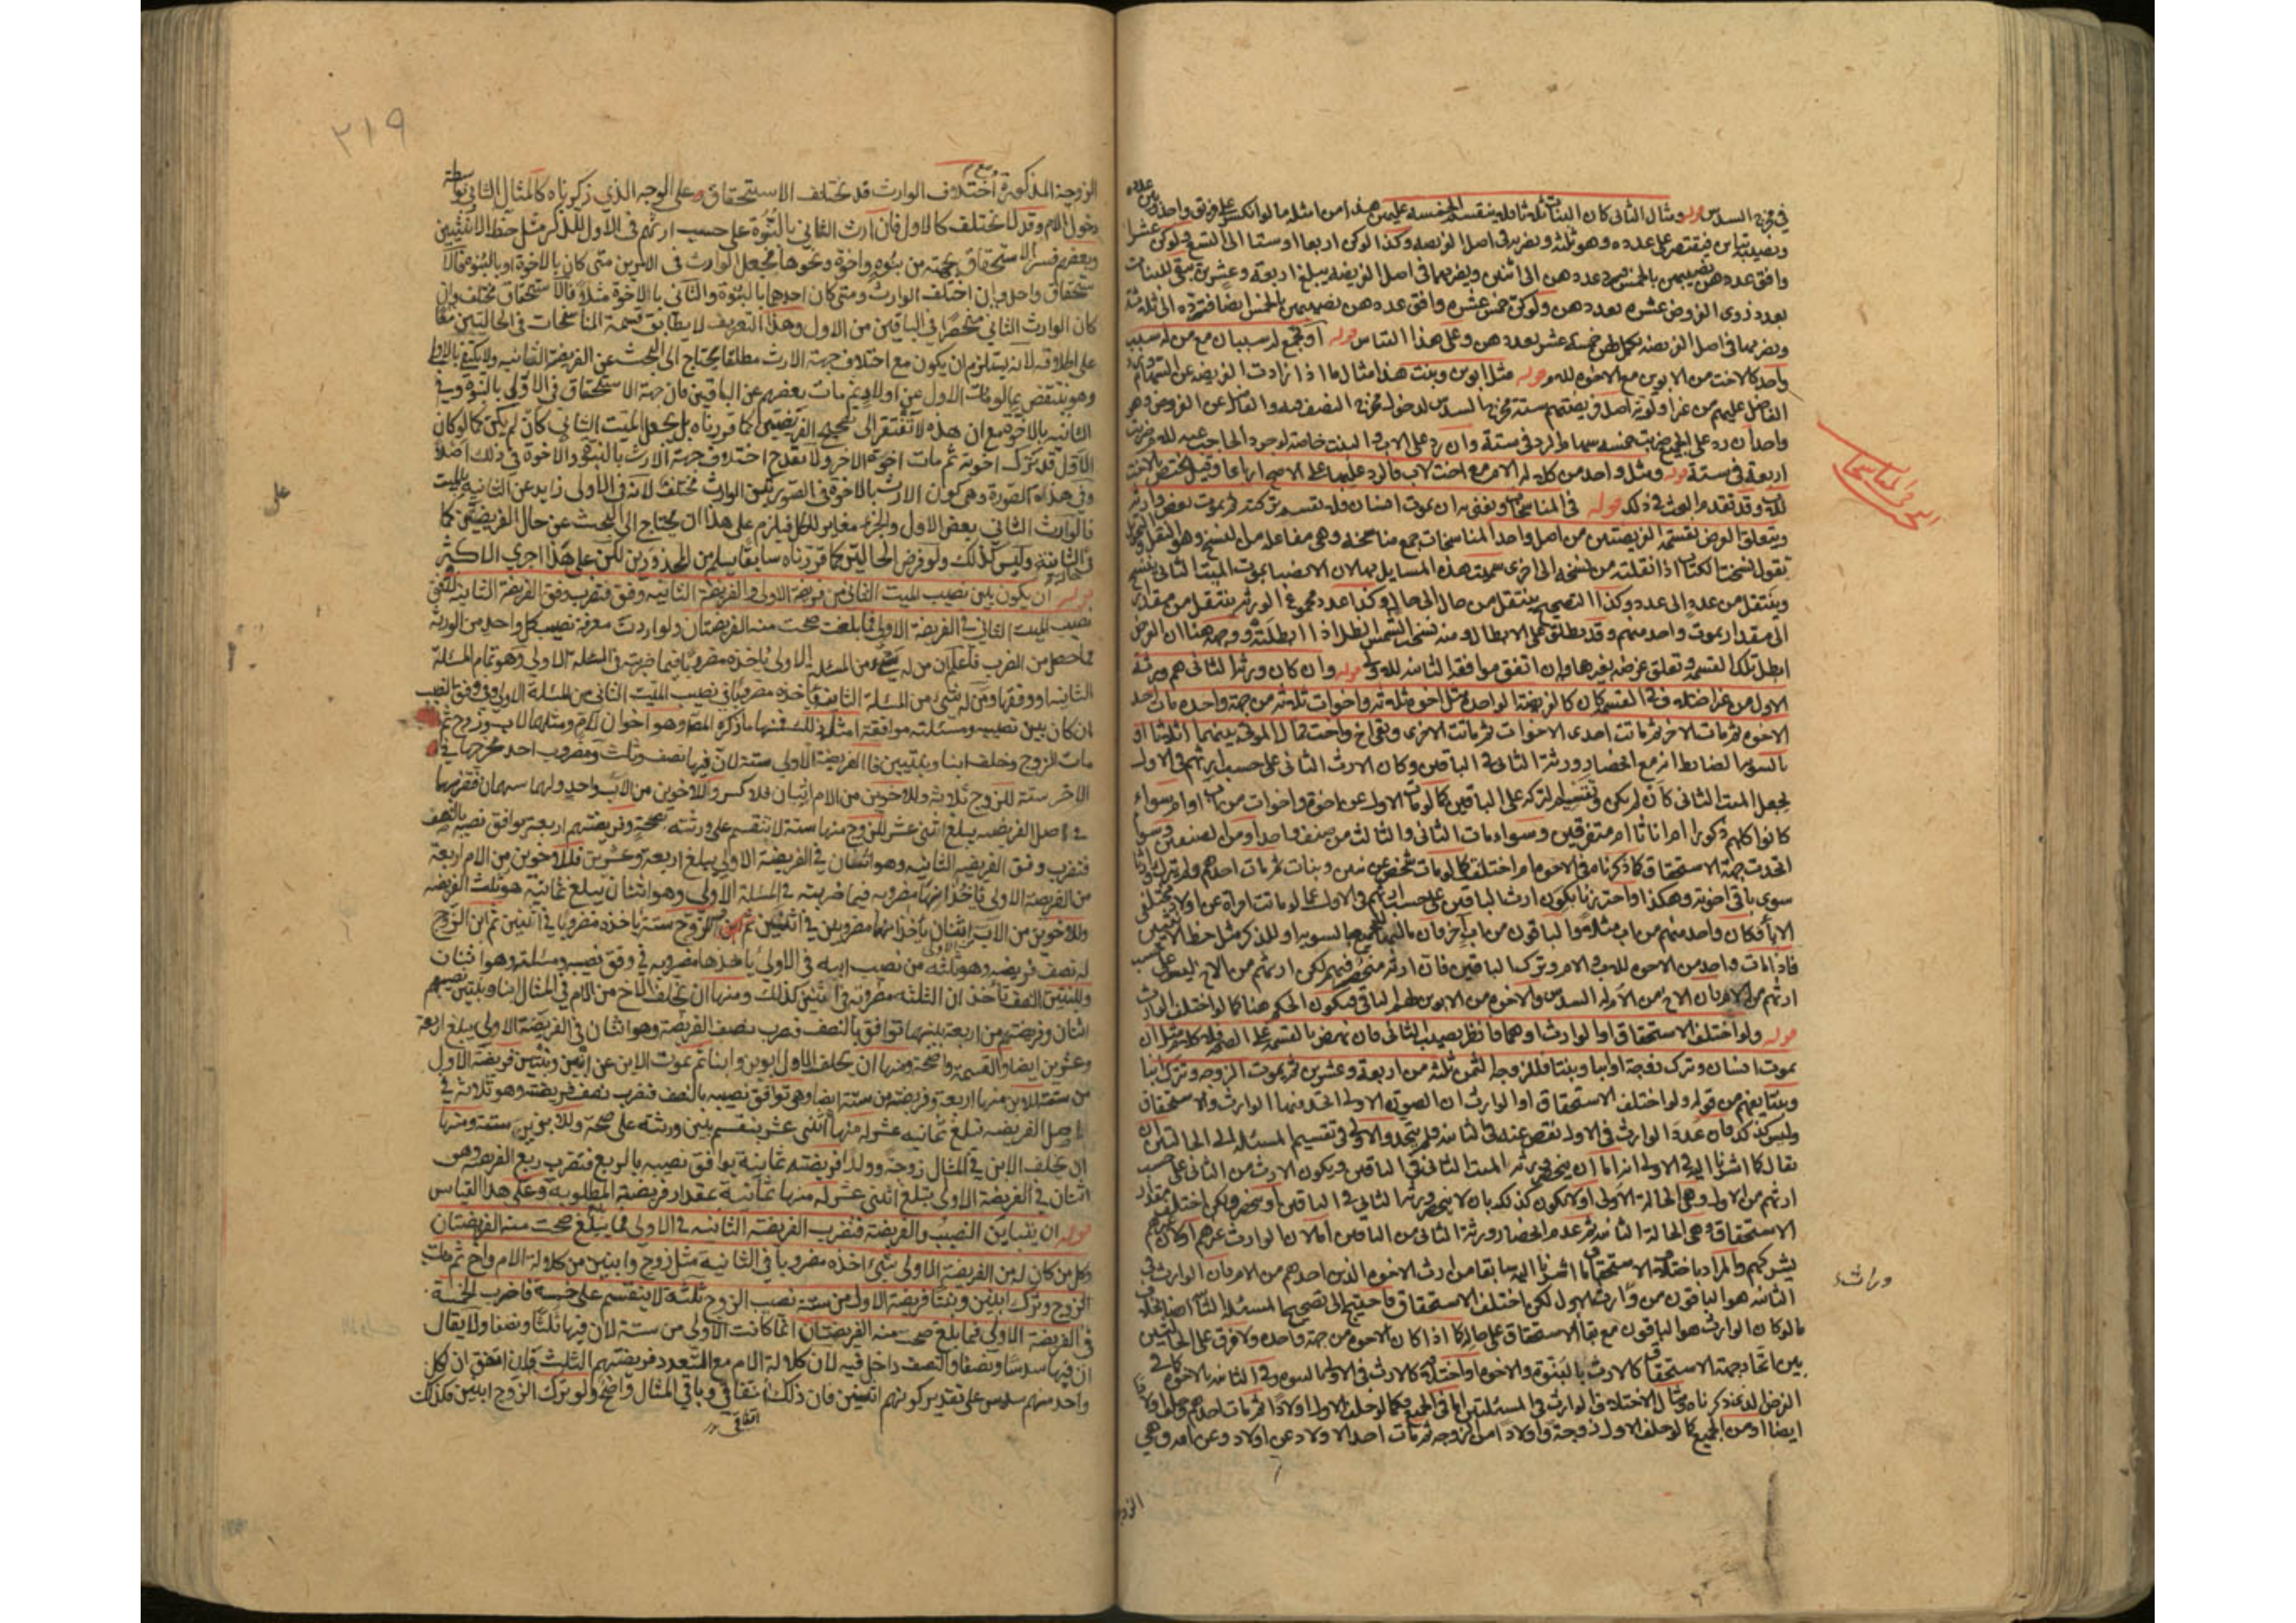 في مخرج السدس قوله ومثال الثاني كان البنات ثلثا فلم ينقسم الخمسة عليهن هذا من امثلة ما لو انكسر على فريق واحد وبين عدده
ونصيبه تباين فيقتصر على عدده وهو ثلثة ويضرب في اصل الفريضة وكذا لو كن اربعا او ستا الى التسع ولو كن عشرا
وافق عددهن نصيبهن بالخمس فيرد عددهن الى اثنين ويضربهما في اصل الفريضة يبلغ اربعة وعشرين يبقى للبنات
بعد ذوي الفروض عشرة بعددهن ولو كن خمس عشرة وافق عددهن نصيبهن بالخمس ايضا فترده الى ثلثة
ويضربها في اصل الفريضة يكمل لهن خمسة عشر بعددهن وعلى هذا القياس قوله او يجمع له سببان مع من له سبب
واحد كالاخت من الابوين مع الاخوة للام قوله مثل ابوين وبنت هذا مثال ما اذا زادت الفريضة عن السهام ويرد
الفاضل عليهم من غير اولوية اصل فريضتهم ستة مخرجها السدس لدخول مخرج النصف فيه والفاضل عن الفروض وهو
واحد ان رد على الجميع ضربت خمسة سهام الرد في ستة وان رد على الاب والبنت خاصة لوجود الحاجب عنه للام ضربت
اربعة في ستة قوله ومثل واحد من كلالة الام مع اخت لاب فالرد عليهما على الاصح ارباعا وقيل يختص بالاخت
للاب وقد تقدم البحث في ذلك قوله في المناسخات ونعني به ان يموت انسان ولم تقسم تركته ثم يموت بعض وارثه
ويتعلق الغرض بقسمة الفريضتين من اصل واحد المناسخات جمع مناسخة وهي مفاعلة من النسخ وهو النقل والتحويل
تقول نسخت الكتاب اذا نقلته من نسخة الى اخرى سميت هذه المسايل بها لان الانصباء بموت الميت الثاني تنسخ
وينتقل من عدد الى عدد وكذا التصحيح ينتقل من حال الى حال وكذا عدد مجموع الورثة ينتقل من مقدار
الى مقدار بموت واحد منهم وقد يطلق على الابطال ومنه نسخت الشمس الظل اذا ابطلته ووجهه هنا ان الغرض
ابطل تلك القسمة وتعلق غرضه بغيرها وان اتفق موافقة الثانية للاولى قوله وان كان ورثة الثاني هم ورثة
الاول من غير اختلاف في القسمة كان كالفريضة الواحدة مثل اخوة ثلثة واخوات ثلثة من جهة واحدة مات احد
الاخوة ثم مات الاخر ثم ماتت احدى الاخوات ثم ماتت الاخرى وبقي اخ واخت فمال الموتى بينهما اثلاثا او
بالسوية الضابط انه مع انحصار ورثة الثاني في الباقين وكان الارث الثاني على حسب ارثهم في الاول
يجعل الميت الثاني كأن لم يكن وتقسم التركة على الباقين كما لو مات الاول عن اخوة واخوات من اب او ام سواء
كانوا كلهم ذكورا ام اناثا ام متفرقين وسواء مات الثاني والثالث من صنف واحد او من الصنفين وسواء
اتحدت جهة الاستحقاق كما ذكرنا في الاخوة ام اختلفت كما لو مات شخص عن بنين وبنات ثم مات احدهم ولم يترك وارثا
سوى باقي اخوته وهكذا واحترزنا بكون ارث الباقين على حسب ارثهم في الاول عما لو ماتت امرأة عن اولاد مختلفي
الاب فكان واحد منهم من اب مثلا والباقون من اب اخر فان مالها يقسم بينهم بالسوية او للذكر مثل حظ الانثيين
فاذا مات واحد من الاخوة للاب والام وترك الباقين فان ارثه منحصر فيهم لكن ارثهم من الاخ ليس على حسب
ارثهم من الام فان الاخ من الام له السدس والاخوة من الابوين لهم الباقي فيكون الحكم هنا كما لو اختلف الوارث
قوله ولو اختلف الاستحقاق او الوارث او هما فانظر نصيب الثاني فان نهض بالقسمة على الصحة فلا كلام مثل ان
يموت انسان ويترك زوجة وابنا وبنتا فللزوجة الثمن ثلثة من اربعة وعشرين ثم يموت الزوجة وتترك ابنا
وبنتا يفهم من قوله ولو اختلف الاستحقاق او الوارث ان الصورة الاولى اتحد فيها الوارث والاستحقاق
وليس كذلك فان عدد الوارث في الاولى نقص عنه في الثانية فلم يتحد والاولى في تقسيم المسئلة الى الحالتين ان
يقال كما اشرنا اليه في الاولى انه اما ان ينحصر ورثة الميت الثاني في الباقين ويكون الارث من الثاني على حسب
ارثهم من الاول وهي الحالة الاولى او لا يكون كذلك بان لا ينحصر ورثة الثاني في الباقين او ينحصر ولكن اختلف مقدار
الاستحقاق وهي الحالة الثانية ثم عدم انحصار ورثة الثاني من الباقين اما لان الوارث غيرهم او لان غيرهم
يشركهم والمراد باختلاف الاستحقاق ما اشرنا اليه سابقا من ارث الاخوة الذين احدهم من الام فان الوارث في
الثانية هو الباقون من وارث الاول لكن اختلف الاستحقاق فاحتيج الى تصحيح المسئلة الثانية
ما لو كان الوارث هو الباقون مع بقاء الاستحقاق على حاله كما اذا كان الاخوة من جهة واحدة ولا فرق على الحالتين
بين اتحاد جهة الاستحقاق كالارث بالبنوة والاخوة واختلافه كالارث في الاولى بالبنوة وفي الثانية بالاخوة كما في
الفرض الذي ذكرناه ومثال الاختلاف في الوارث في المسئلتين اما في الجميع فكما لو خلف الاول اولادا ثم مات احدهم وخلف اولادا
ايضا او من الجميع كما لو خلف الاول زوجة واولادا من الزوجة ثم مات احد الاولاد عن اولاد وعن امه وهي
وراث
الزوجة
٢١٩
الزوجة المذكورة ومع اختلاف الوارث قد يختلف الاستحقاق على الوجه الذي ذكرناه كالمثال الثاني بواسطة
دخول الام وقد لا يختلف كالاول فان ارث الثاني بالبنوة على حسب ارثهم في الاول للذكر مثل حظ الانثيين
وبعضهم فسر الاستحقاق بجهته من بنوة واخوة ونحوها فجعل الوارث في الامرين متى كان بالاخوة او بالبنوة فالا
ستحقاق واحد وان اختلف الوارث ومتى كان احدهما بالبنوة والثاني بالاخوة مثلا فالاستحقاق مختلف وان
كان الوارث الثاني منحصرا في الباقين من الاول وهذا التعريف لا يطابق قسمة المناسخات في الحالتين معا
على اطلاقه لانه يستلزم ان يكون مع اختلاف جهة الارث مطلقا يحتاج الى البحث عن الفريضة الثانية ولا يكتفى بالاولى
وهو ينتقض بما لو مات الاول عن اولاد ثم مات بعضهم عن الباقين فان جهة الاستحقاق في الاولى بالبنوة وفي
الثانية بالاخوة مع ان هذه لا تفتقر الى تصحيح الفريضتين كما قررناه بل يجعل الميت الثاني كأن لم يكن كما لو كان
الاول قد ترك اخوته ثم مات اخوهم الاخر ولا يقدح اختلاف جهة الارث بالبنوة والاخوة في ذلك اصلا
وفي هذه الصورة وهي كون الارث بالاخوة في الصورتين الوارث مختلف لانه في الاولى زايد عن الثانية بالميت
فالوارث الثاني بعض الاول والجزء مغاير للكل فيلزم على هذا ان يحتاج الى البحث عن حال الفريضتين كما
في الثانية وليس كذلك ولو فرض الحالتين كما قررناه سابقا يسلم من المحذورين لكن على هذا اجرى الاكثر
قوله ان يكون بين نصيب الميت الثاني من فريضة الاولى والفريضة الثانية وفق فتضرب وفق الفريضة الثانية لا وفق
نصيب الميت الثاني في الفريضة الاولى فما بلغت صحت منه الفريضتان ولو اردت معرفة نصيب كل واحد من الورثة
مما حصل من الضرب فاعلم ان من له شيء من المسئلة الاولى يأخذه مضروبا فيما ضربته في المسئلة الاولى وهو تمام المسئلة
الثانية او وفقها ومن له شيء من المسئلة الثانية يأخذه مضروبا في نصيب الميت الثاني من المسئلة الاولى وفي وفق النصيب
ان كان بين نصيبه ومسئلته موافقة امثلة ذلك فمنها ما ذكره المصنف وهو اخوان لام ومثلهما لاب وزوج ثم
مات الزوج وخلف ابنا وبنتين فالفريضة الاولى ستة لان فيها نصف وثلث ومضروب احد مخرجها في
الاخر ستة للزوج ثلاثة وللاخوين من الام اثنان فلا كسر وللاخوين من الاب واحد ولهما سهمان فتضربهما
في اصل الفريضة يبلغ اثنى عشر للزوج منها ستة لا تنقسم على ورثته صحيحة وفريضتهم اربعة يوافق نصيبه بالنصف
فتضرب وفق الفريضة الثانية وهو اثنان في الفريضة الاولى يبلغ اربعة وعشرين فللاخوين من الام اربعة
من الفريضة الاولى يأخذانها مضروبة فيما ضربته في المسئلة الاولى وهو اثنان يبلغ ثمانية هو ثلث الفريضة
وللاخوين من الاب اثنان يأخذانهما مضروبين في اثنين ثم الزوج ستة يأخذه مضروبا في اثنين ثم ابن الزوج
له نصف فريضته وهو ثلثة من نصيب ابيه في الاولى يأخذها مضروبة في وفق نصيبه ومسئلته وهو اثنان
وللبنتين النصف يأخذان الثلثة مضروبة في اثنين كذلك ومنها ان يخلف الاخ من الام في المثال ابنا وبنتين نصيبهم
اثنان وفريضتهم من اربعة بينهما توافق بالنصف فتضرب نصف الفريضة وهو اثنان في الفريضة الاولى يبلغ اربعة
وعشرين ايضا والقسمة واضحة ومنها ان يخلف الاول ابوين وابنا ثم يموت الابن عن ابنين وبنتين فريضة الاول
من ستة للابن منها اربعة وفريضته من ستة ايضا وهي توافق نصيبه بالنصف فتضرب نصف فريضته وهو ثلاثة في
اصل الفريضة تبلغ ثمانية عشر له منها اثنى عشر ينقسم بين ورثته على صحة وللابوين ستة ومنها
ان يخلف الابن في المثال زوجة وولدا فريضته ثمانية يوافق نصيبه بالربع فتضرب ربع الفريضة وهو
اثنان في الفريضة الاولى يبلغ اثنى عشر له منها ثمانية بمقدار فريضته المطلوبة وعلى هذا القياس
قوله ان يتباين النصيب والفريضة فتضرب الفريضة الثانية في الاولى فما يبلغ صحت منه الفريضتان
وكل من كان له من الفريضة الاولى شيء اخذه مضروبا في الثانية مثل زوج واثنين من كلالة الام واخ ثم مات
الزوج وترك ابنين وبنتا فريضة الاول من ستة نصيب الزوج ثلثة لا ينقسم على خمسة فاضرب الخمسة
في الفريضة الاولى فما بلغ صحت منه الفريضتان انما كانت الاولى من ستة لان فيها ثلثا ونصفا ولا يقال
ان فيها سدسا ونصفا والنصف داخل فيه لان كلالة الام مع التعدد فريضتهم الثلث فان اتفق ان لكل
واحد منهم سدس على تقدير كونهم اثنين فان ذلك اتفاقي وباقي المثال واضح ولو ترك الزوج ابنين فكذلك
على